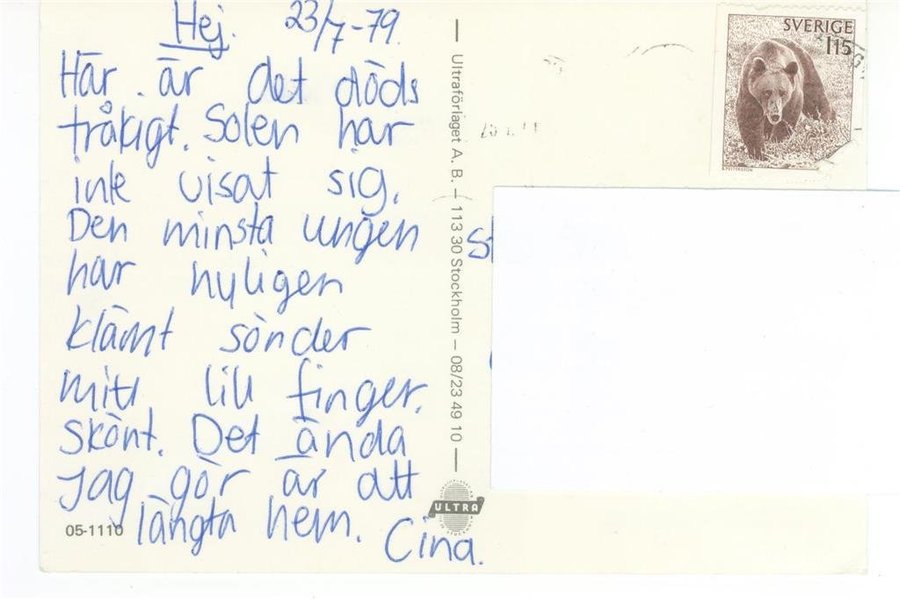 Hej. 23/7-79.
Här är det döds
tråkigt. Solen har
inte visat sig.
Den minsta ungen
har nyligen
klämt sönder
mitt lill finger.
Skönt. Det ända
jag gör är att
längta hem. Cina.
05-1110
Ultraförlaget A. B. – 113 30 Stockholm – 08/23 49 10
ULTRA
SVERIGE
115